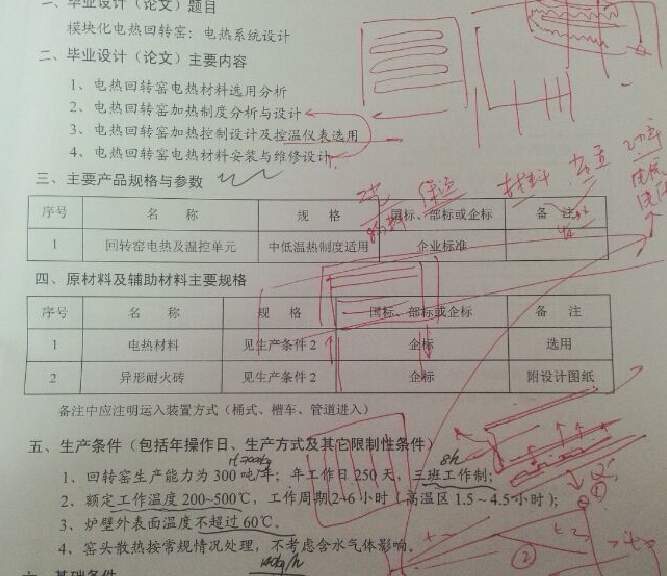 一、毕业设计（论文）题目
模块化电热回转窑：电热系统设计
二、毕业设计（论文）主要内容
1、电热回转窑电热材料选用分析
2、电热回转窑加热制度分析与设计
3、电热回转窑加热控制设计及控温仪表选用
4、电热回转窑电热材料安装与维修设计
三、主要产品规格与参数
保温 材料 功率
序号 名 称 规 格 国标、部标或企标 备 注
1 回转窑电热及温控单元 中低温热制度适用 企业标准
四、原材料及辅助材料主要规格
序号 名 称 规 格 国标、部标或企标 备 注
1 电热材料 见生产条件2 企标 选用
2 异形耐火砖 见生产条件2 企标 附设计图纸
备注中应注明运入装置方式（桶式、槽车、管道进入）
五、生产条件（包括年操作日、生产方式及其它限制性条件）
8h
1、回转窑生产能力为300吨/年；年工作日250天，三班工作制；
2、额定工作温度200~500℃，工作周期2~6小时（高温区1.5~4.5小时）；
3、炉壁外表面温度不超过60℃。
4、窑头散热按常规情况处理，不考虑含水气体影响。
②
六、基础条件